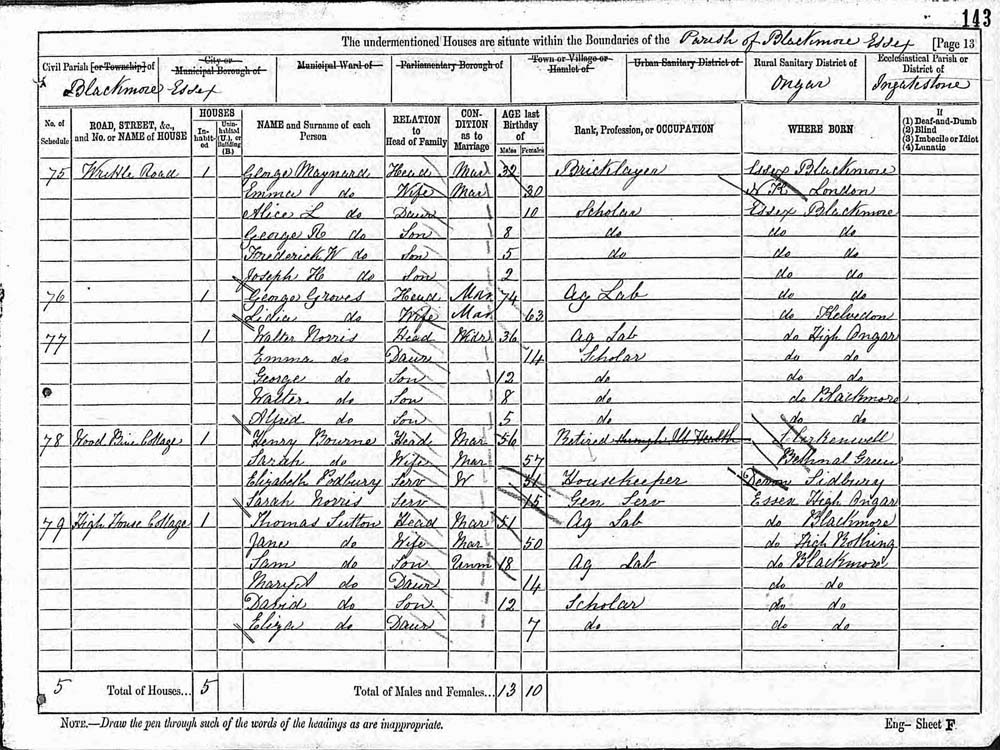 143
The undermentioned Houses are situate within the Boundaries of the Parish of Blackmore Essex [Page 13
Civil Parish [or Township] of Blackmore Essex
City or Municipal Borough of
Municipal Ward of
Parliamentary Borough of
Town or Village or Hamlet of
Urban Sanitary District of
Rural Sanitary District of Ongar
Ecclesiastical Parish or District of Ingatestone
No. of Schedule
ROAD, STREET, &c., and No. or NAME of HOUSE
HOUSES
In-habit-ed
Unin-habited (U.), or Building (B.)
NAME and Surname of each Person
RELATION to Head of Family
CON-DITION as to Marriage
AGE last Birthday of
Males
Females
Rank, Profession, or OCCUPATION
WHERE BORN
If
(1) Deaf-and-Dumb
(2) Blind
(3) Imbecile or Idiot
(4) Lunatic
75 Writtle Road 1 George Maynard Head Mar 32 Bricklayer Essex Blackmore
Emma do Wife Mar 30 London
Alice L do Daur 10 Scholar Essex Blackmore
George R do Son 8 do do do
Frederick W do Son 5 do do do
Joseph H do Son 2 do do
76 1 George Groves Head Mar 74 Ag Lab do do
Lidia do Wife Mar 63 do Kelvedon
77 1 Walter Norris Head Widr 36 Ag Lab do High Ongar
Emma do Daur 14 Scholar do do
George do Son 12 do do do
Walter do Son 8 do do Blackmore
Alfred do Son 5 do do do
78 Wood Bine Cottage 1 Henry Bourne Head Mar 56 Retired through Ill Health Clerkenwell
Sarah do Wife Mar 57 Bethnal Green
Elizabeth Podbury Serv W 51 Housekeeper Devon Sidbury
Sarah Norris Serv 15 Gen Serv Essex High Ongar
79 High House Cottage 1 Thomas Sutton Head Mar 51 Ag Lab do Blackmore
Jane do Wife Mar 50 do High Rothing
Sam do Son Unm 18 Ag Lab do Blackmore
Mary A do Daur 14 do do
David do Son 12 Scholar do do
Eliza do Daur 7 do do do
5 Total of Houses... 5 Total of Males and Females... 13 10
NOTE.—Draw the pen through such of the words of the headings as are inappropriate.
Eng— Sheet F.